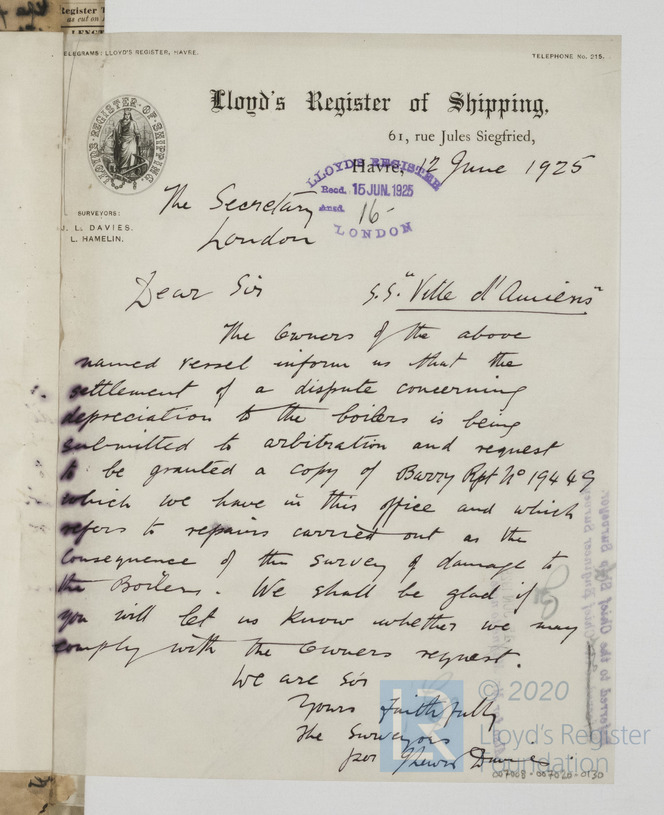 Register T
as cut on
LENGT
TELEGRAMS: LLOYD'S REGISTER, HAVRE.
TELEPHONE No. 215.
Lloyd's Register of Shipping,
61, rue Jules Siegfried,
Havre, 12 June 1925
LLOYD'S REGISTER OF SHIPPING
LLOYD'S REGISTER
Recd. 15 JUN. 1925
Ansd. 16
LONDON
SURVEYORS:
J. L. DAVIES.
L. HAMELIN.
The Secretary
London
Dear Sir
S.S. "Ville d'Amiens"
The Owners of the above
named vessel inform us that the
settlement of a dispute concerning
depreciation to the boilers is being
submitted to arbitration and request
to be granted a copy of Barry Rpt No 19449
which we have in this office and which
refers to repairs carried out as the
consequence of the survey of damage to
the Boilers. We shall be glad if
you will let us know whether we may
comply with the Owners request.
We are Sir
Yours faithfully
The Surveyors
per Davies
Chief Engineer Surveyor
Referred to the Chief Ship Surveyor
LR
© 2020
Lloyd's Register
Foundation
007008-007020-0130